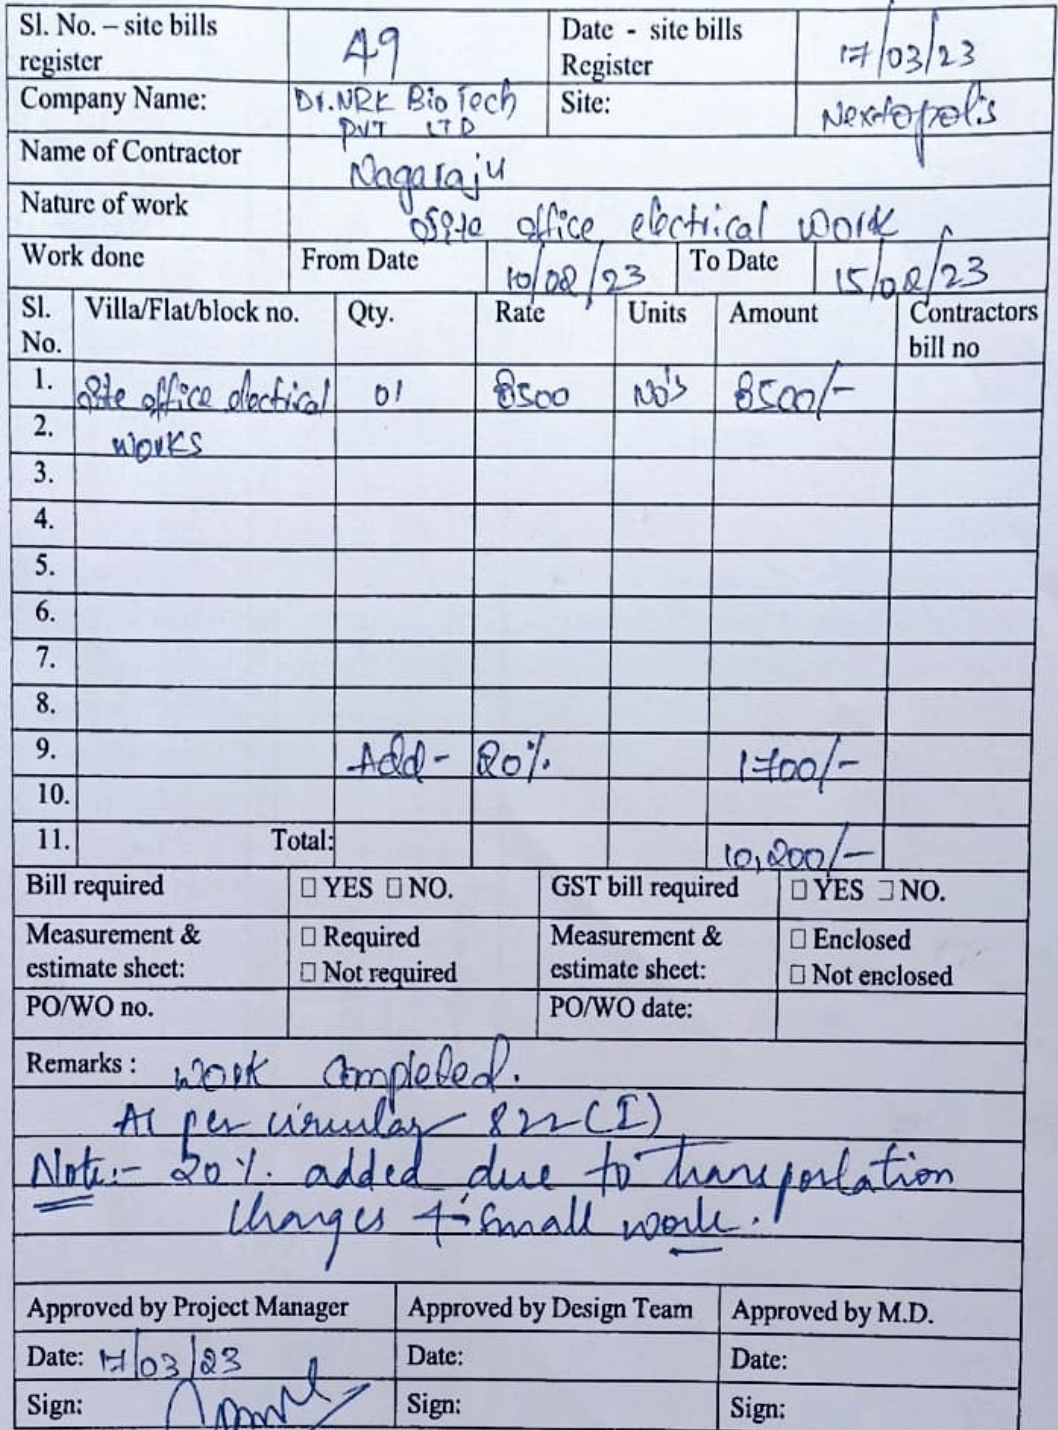 Sl. No. – site bills register 49 Date - site bills Register 17/03/23
Company Name: Dr.NRK Bio Tech PVT LTD Site: Nextopolis
Name of Contractor Nagaraju
Nature of work office electrical work
Work done From Date 10/02/23 To Date 15/02/23
Sl. No. Villa/Flat/block no. Qty. Rate Units Amount Contractors bill no
1. Site office electrical 01 8500 No's 8500/-
2. works
3.
4.
5.
6.
7.
8.
9. Add - 20% 1700/-
10.
11. Total: 10,200/-
Bill required □ YES □ NO. GST bill required □ YES □ NO.
Measurement & estimate sheet: □ Required □ Not required Measurement & estimate sheet: □ Enclosed □ Not enclosed
PO/WO no. PO/WO date:
Remarks : work completed.
As per circular 822(I)
Note:- 20%. added due to transportation
charges + small work.
Approved by Project Manager Approved by Design Team Approved by M.D.
Date: 17/03/23 Date: Date:
Sign: Sign: Sign: